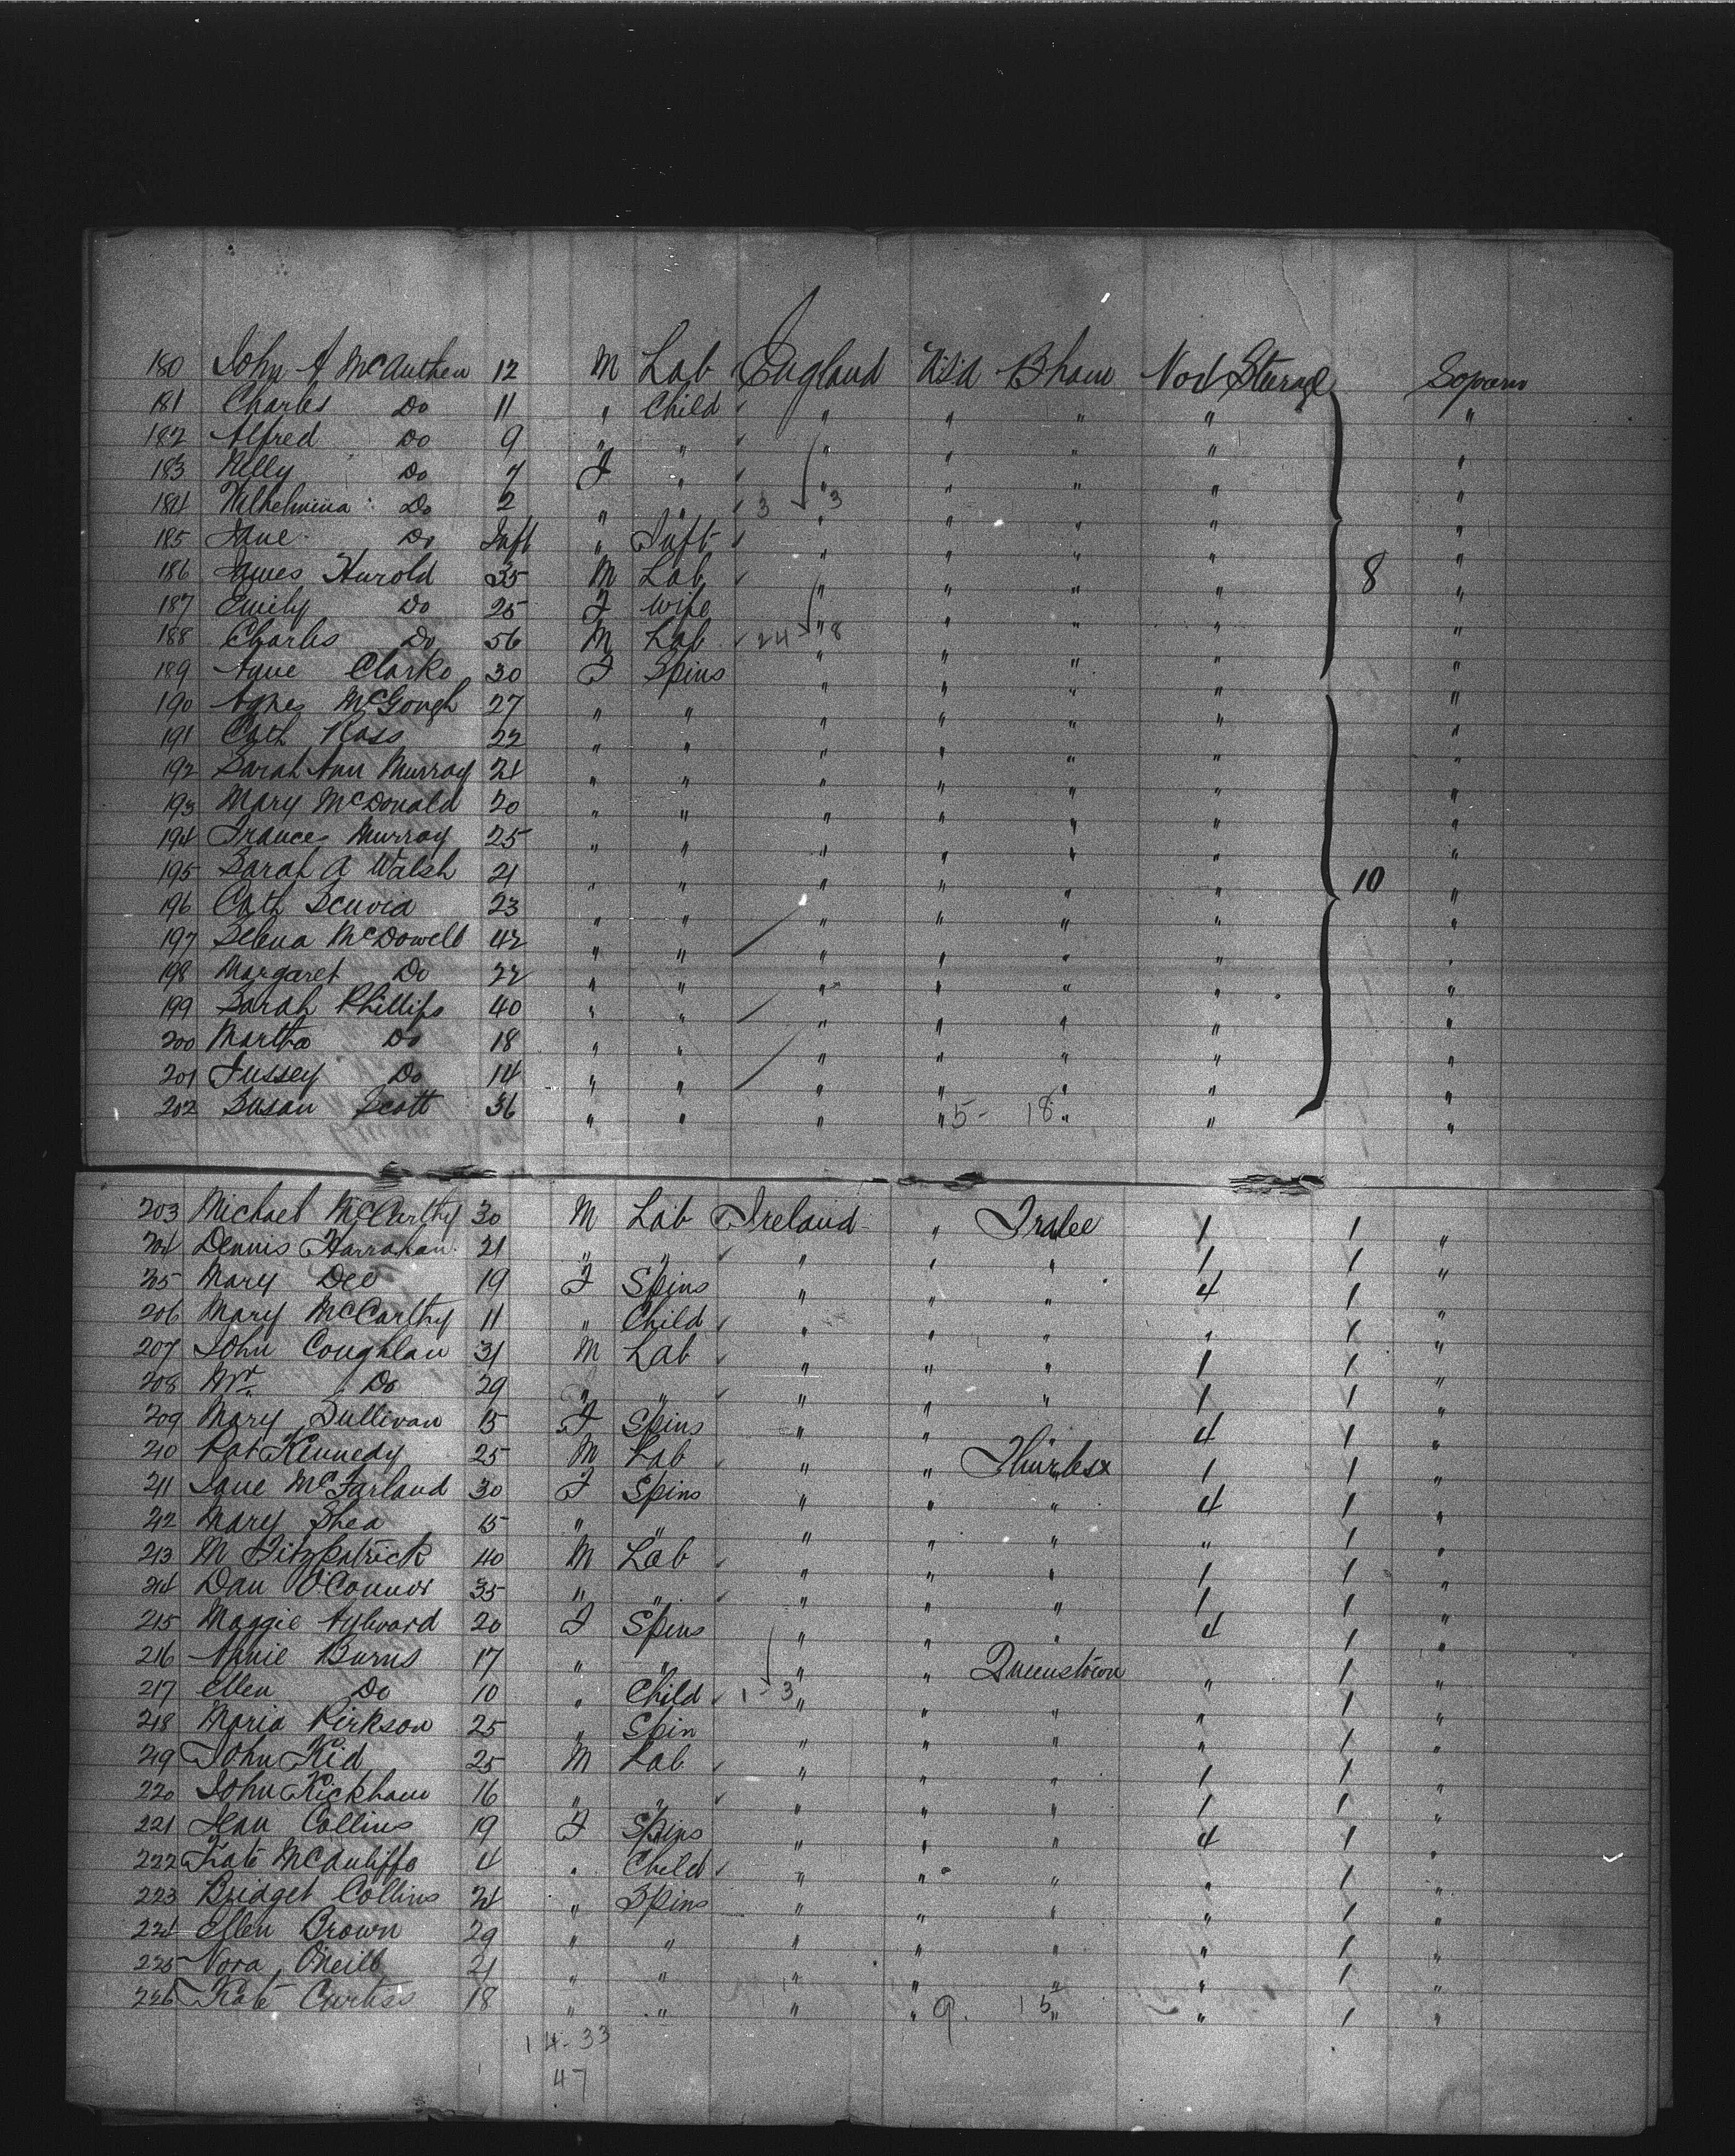 180 John A McAuthen 12 M Lab England USA Bham Nod Sturage Sopars
181 Charles Do 11 " Child " " " " "
182 Alfred Do 9 " " " " " " "
183 Nelly Do 7 F " " " " " "
184 Wilhelmina Do 2 " " 3 3 " " " " "
185 Jane Do Inft " Inft " " " " "
186 James Harold 35 M Lab " " " " 8 "
187 Emily Do 25 F Wife " " " " "
188 Charles Do 56 M Lab 24 8 " " " " "
189 Anne Clarke 30 F Spins " " " " "
190 Agnes McGough 27 " " " " " " "
191 Cath Ross 22 " " " " " " "
192 Sarah Ann Murray 21 " " " " " " "
193 Mary McDonald 20 " " " " " " "
194 Frances Murray 25 " " " " " " "
195 Sarah A Walsh 21 " " " " " 10 "
196 Cath 23 " " " " " " "
197 Selena McDowell 42 " " " " " " "
198 Margaret Do 22 " " " " " " "
199 Sarah Phillips 40 " " " " " " "
200 Martha Do 18 " " " " " " "
201 Tussey Do 14 " " " " " " "
202 Susan Scott 36 " " " " 5 - 18 " " "
203 Michael McCarthy 30 M Lab Ireland " Tralee 1 1 "
204 Dennis Harrahan 21 " " " " " 1 1 "
205 Mary Dee 19 F Spins " " " 4 1 "
206 Mary McCarthy 11 " Child " " " " 1 "
207 John Coughlan 31 M Lab " " " 1 1 "
208 Wm Do 29 " " " " " 1 1 "
209 Mary Sullivan 15 F Spins " " 4 1 "
210 Pat Kennedy 25 M Lab " " Thurles 1 1 "
211 Jane McFarland 30 F Spins " " " 4 1 "
212 Mary Shea 15 " " " " " " 1 "
213 M Fitzpatrick 40 M Lab " " " 1 1 "
214 Dan O'Connor 35 " " " " " 1 1 "
215 Maggie Aylward 20 F Spins " " " 4 1 "
216 Annie Burns 17 " " " " Queenstown " 1 "
217 Ellen Do 10 " Child 1 - 3 " " " " 1 "
218 Maria Kirkson 25 " Spin " " " " 1 "
219 John Kid 25 M Lab " " " 1 1 "
220 John Kickham 16 " " " " " 1 1 "
221 Jean Collins 19 F Spins " " " 4 1 "
222 Kate McAuliffe 4 " Child " " " " 1 "
223 Bridget Collins 21 " Spins " " " " 1 "
224 Ellen Brown 29 " " " " " " 1 "
225 Nora O'Neill 21 " " " " " " 1 "
226 Kate Curtiss 18 " " " " 9 15 " " 1 "
14-33
47